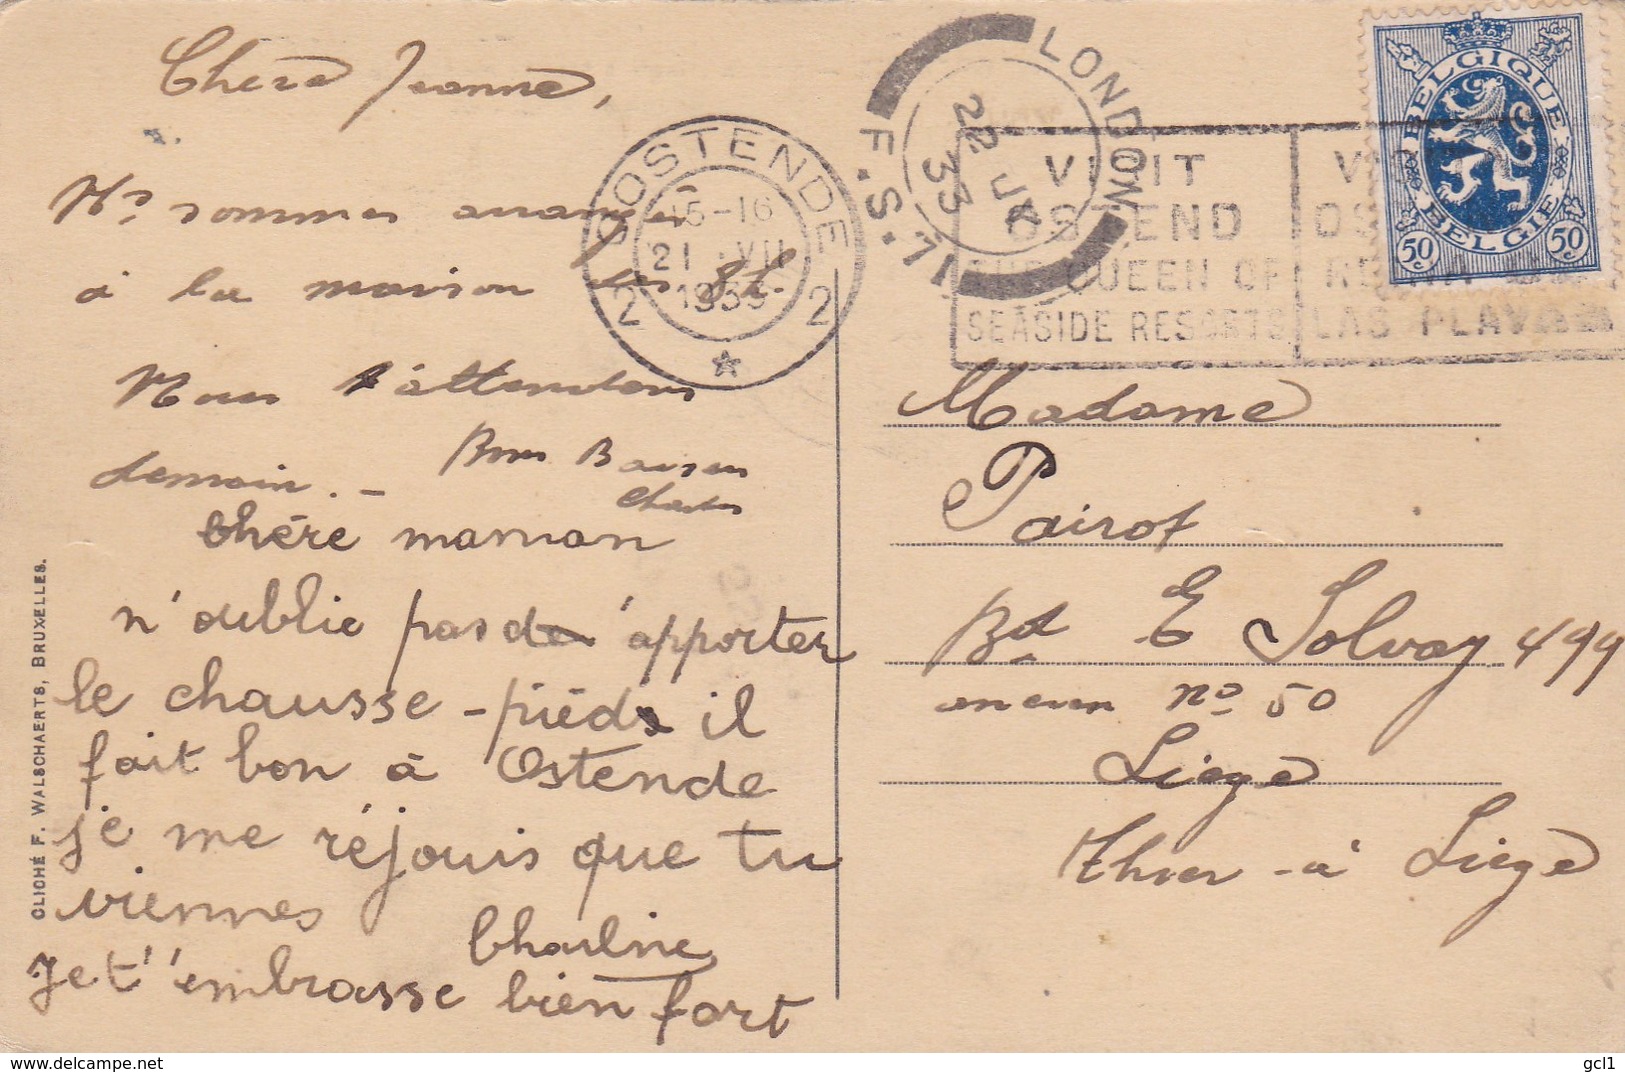 Chère Jeanne,
Ns sommes arrangés
à la maison des
Nous t'attendons
demain. - Bons Baisers
Charles
chère maman
n'oublie pas d'apporter
le chausse-pieds il
fait bon à Ostende
je me réjouis que tu
viennes
Charline
Je t'embrasse bien fort
CLICHÉ F. WALSCHAERTS, BRUXELLES.
OOSTENDE
15-16
21 VII
1933
2 2
LONDON
F.S.
22 JY
33
VISIT
OSTEND
THE QUEEN OF
SEASIDE RESORTS
LAS PLAYAS
BELGIQUE
BELGIË
50c 50c
Madame
Pairot
Bd E Solvay 499
ancien no 50
Liege
Thier-à Liege
delcampe.net
gcl1